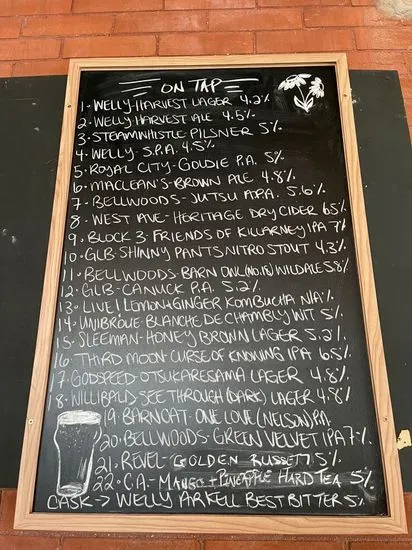 ON TAP
1. WELLY-HARVEST LAGER 4.2%
2. WELLY HARVEST ALE 4.5%
3. STEAMWHISTLE PILSNER 5%
4. WELLY-S.P.A. 4.5%
5. ROYAL CITY-GOLDIE P.A. 5%
6. MACLEAN'S-BROWN ALE 4.8%
7. BELLWOODS-JUTSU A.P.A. 5.6%
8. WEST AVE-HERITAGE DRY CIDER 6.5%
9. BLOCK 3-FRIENDS OF KILLARNEY IPA 7%
10. GLB-SHINNY PANTS NITRO STOUT 4.3%
11. BELLWOODS-BARN OWL WILD ALE 5.8%
12. GLB-CANUCK P.A. 5.2%
13. LIVE! LEMON+GINGER KOMBUCHA N/A%
14. UNIBROUE-BLANCHE DE CHAMBLY WIT 5%
15. SLEEMAN-HONEY BROWN LAGER 5.2%
16. THIRD MOON-CURSE OF KNOWING IPA 6.5%
17. GODSPEED-OTSUKARESAMA LAGER 4.8%
18. WILLIBALD-SEE THROUGH (DARK) LAGER 4.8%
19. BARNCAT-ONE LOVE (NELSON) P.A.
20. BELLWOODS-GREEN VELVET IPA 7%
21. REVEL-GOLDEN RUSSET 7.5%
22. C.A.-MANGO + PINEAPPLE HARD TEA 5%
CASK → WELLY ARKELL BEST BITTER 5%